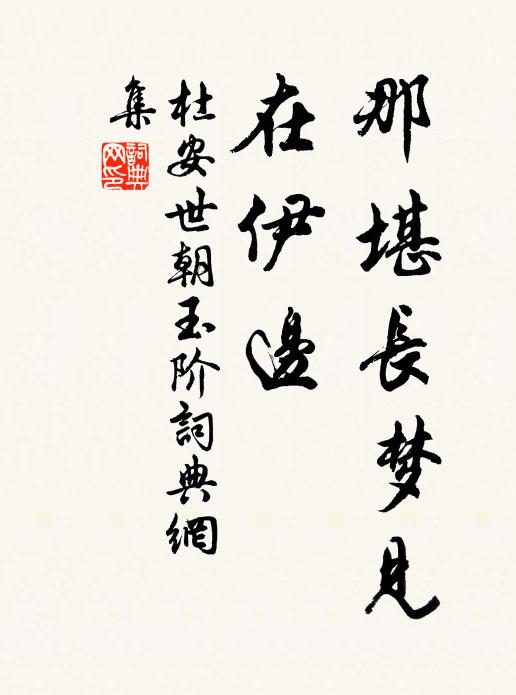 那堪長梦見
在伊邊
杜安世朝玉阶詞典網
集
詞典
网印